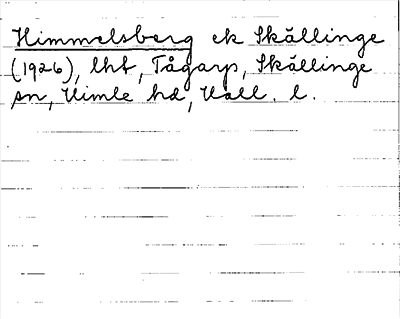 Himmelsberg ek Skällinge
(1926), lht, Tågarp, Skällinge
sn, Himle hd, Hall. l.